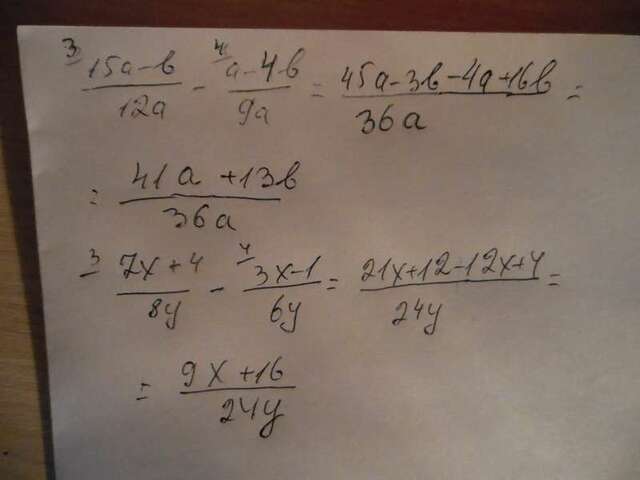 ³ (15a-b)/(12a) - ⁴ (a-4b)/(9a) = (45a-3b-4a+16b)/(36a) =
= (41a+13b)/(36a)
³ (7x+4)/(8y) - ⁴ (3x-1)/(6y) = (21x+12-12x+4)/(24y) =
= (9x+16)/(24y)